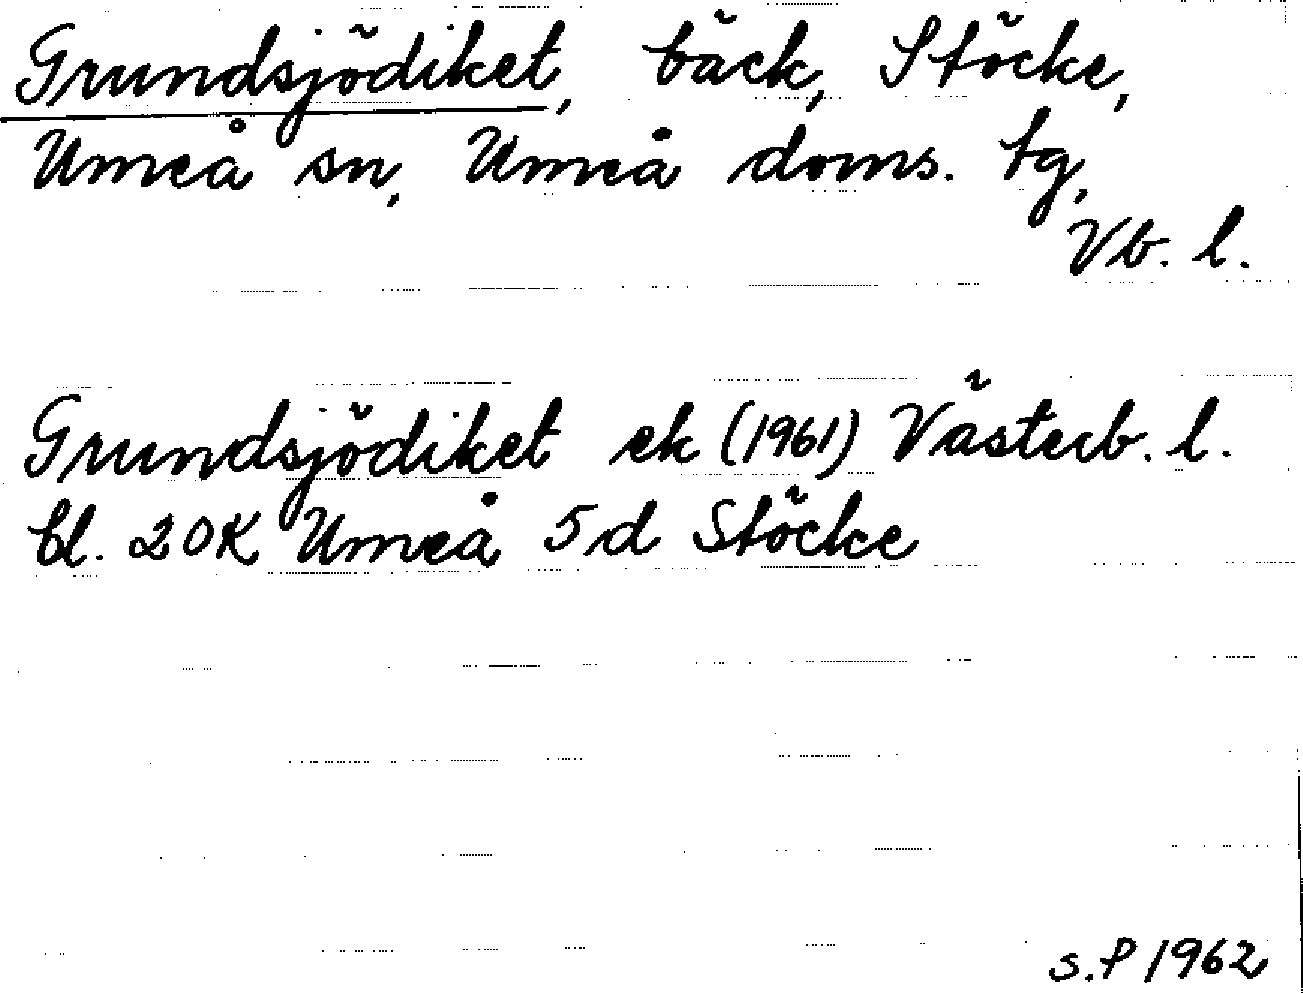 Grundsjödiket, bäck, Stöcke,
Umeå sn, Umeå doms. tg,
Vb. l.
Grundsjödiket ek (1961) Västerb. l.
bl. 20K Umeå 5d Stöcke
s.P 1962